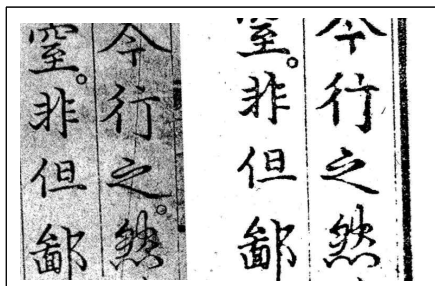 今行之。然
窒。非但鄙
今行之然
窒。非但鄙